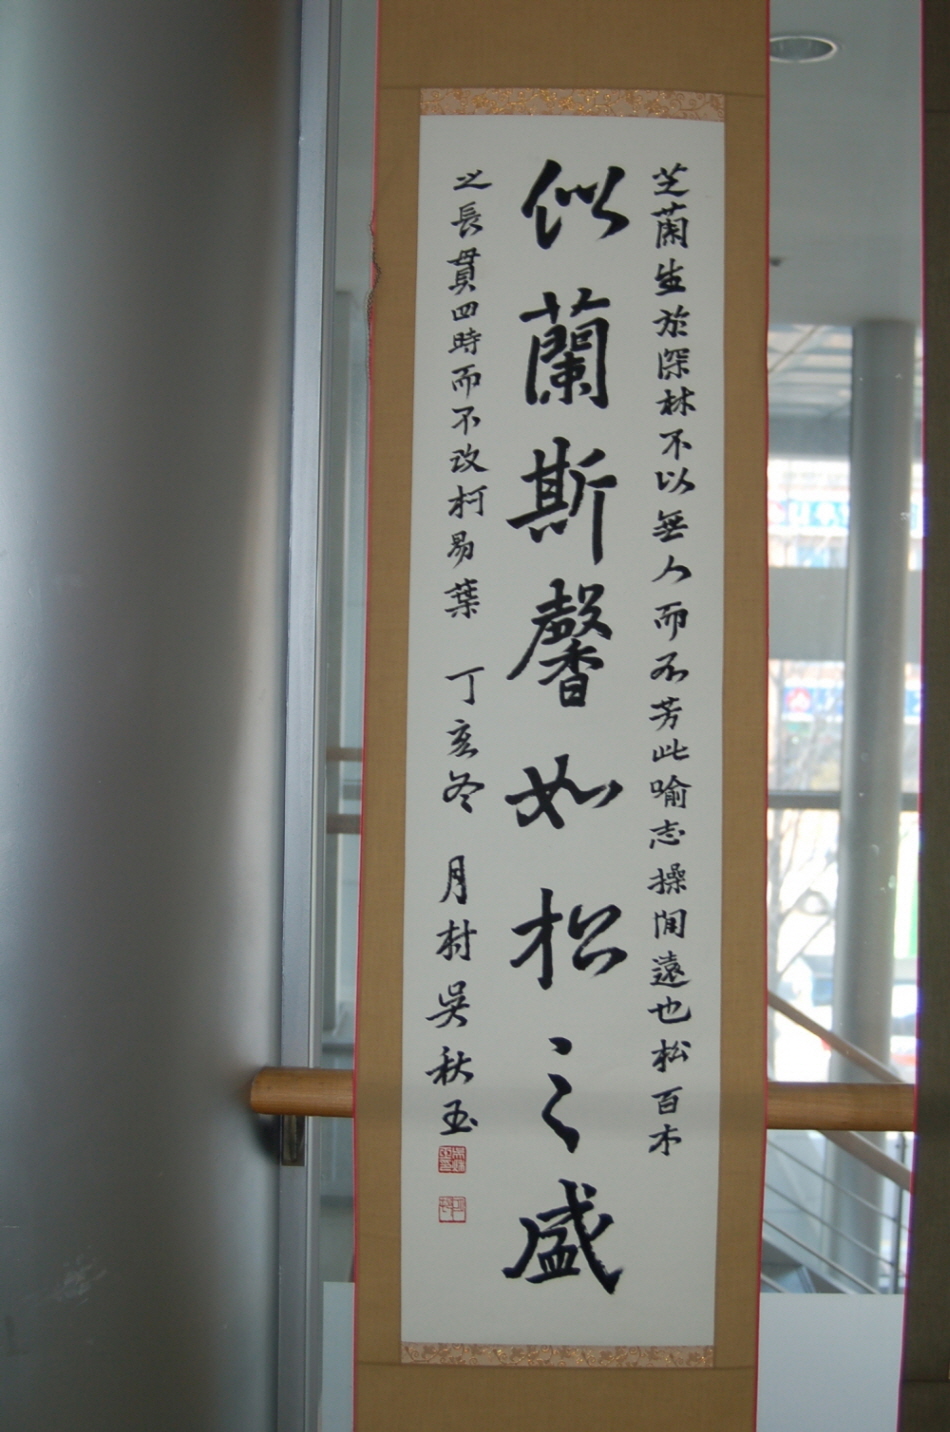 芝蘭生於深林不以無人而不芳此喻志操閒遠也松百木
似蘭斯馨如松之盛
之長貫四時而不改柯易葉 丁亥冬 月村 吳秋玉